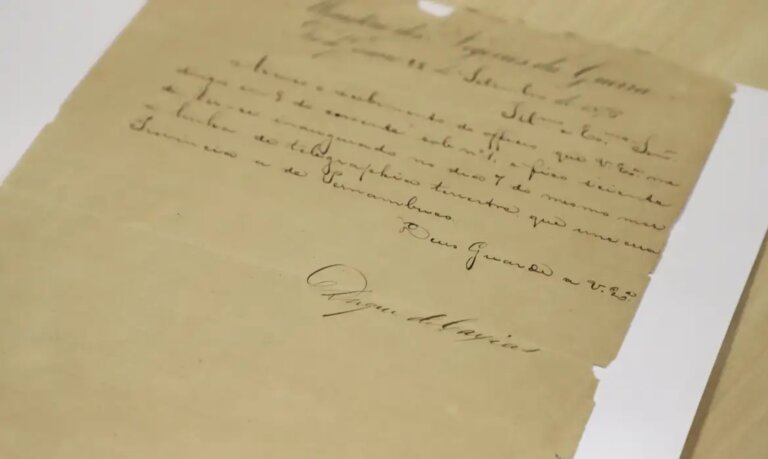 Ministerio dos Negocios da Guerra
de Setembro de 187
Illmo e Exmo Snr.
Accuso o recebimento do officio que V. Exa me
dirigio em 8 do corrente sob nº 1, e fico sciente
de ter-se inaugurado no dia 7 do mesmo mez
a linha de telegraphia terrestre que une essa
Provincia a de Pernambuco.
Deus Guarde a V. Exa
Duque de Caxias